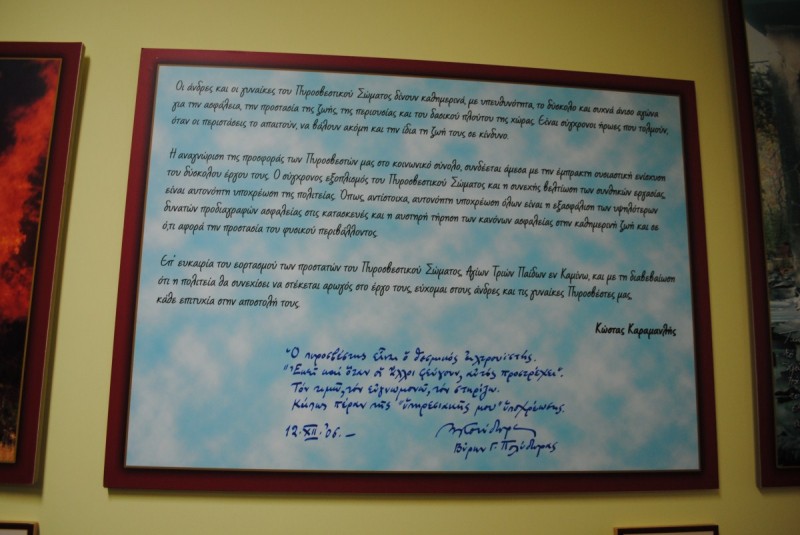 Οι άνδρες και οι γυναίκες του Πυροσβεστικού Σώματος δίνουν καθημερινά, με υπευθυνότητα, το δύσκολο και συχνά άνισο αγώνα
για την ασφάλεια, την προστασία της ζωής, της περιουσίας και του δασικού πλούτου της χώρας. Είναι σύγχρονοι ήρωες που τολμούν,
όταν οι περιστάσεις το απαιτούν, να βάλουν ακόμη και την ίδια τη ζωή τους σε κίνδυνο.
Η αναγνώριση της προσφοράς των Πυροσβεστών μας στο κοινωνικό σύνολο, συνδέεται άμεσα με την έμπρακτη ουσιαστική ενίσχυση
του δύσκολου έργου τους. Ο σύγχρονος εξοπλισμός του Πυροσβεστικού Σώματος και η συνεχής βελτίωση των συνθηκών εργασίας,
είναι αυτονόητη υποχρέωση της πολιτείας. Όπως, αντίστοιχα, αυτονόητη υποχρέωση όλων είναι η εξασφάλιση των υψηλότερων
δυνατών προδιαγραφών ασφαλείας στις κατασκευές και η αυστηρή τήρηση των κανόνων ασφαλείας στην καθημερινή ζωή και σε
ό,τι αφορά την προστασία του φυσικού περιβάλλοντος.
Επ' ευκαιρία του εορτασμού των προστατών του Πυροσβεστικού Σώματος, Αγίων Τριών Παίδων εν Καμίνω, και με τη διαβεβαίωση
ότι η πολιτεία θα συνεχίσει να στέκεται αρωγός στο έργο τους, εύχομαι στους άνδρες και τις γυναίκες Πυροσβέστες μας,
κάθε επιτυχία στην αποστολή τους.
Κώστας Καραμανλής
"Ὁ πυροσβέστης εἶναι ὁ θεσμικός ἀλτρουϊστής.
"Ἐκεῖ πού ὅταν οἱ ἄλλοι φεύγουν, αὐτός προστρέχει".
Τόν τιμῶ, τόν εὐγνωμονῶ, τόν στηρίζω.
Κυρίως πέραν τῆς "ὑπηρεσιακῆς μου" ὑποχρέωσης.
12·XII·'06.–
Βύρων Γ. Πολύδωρας